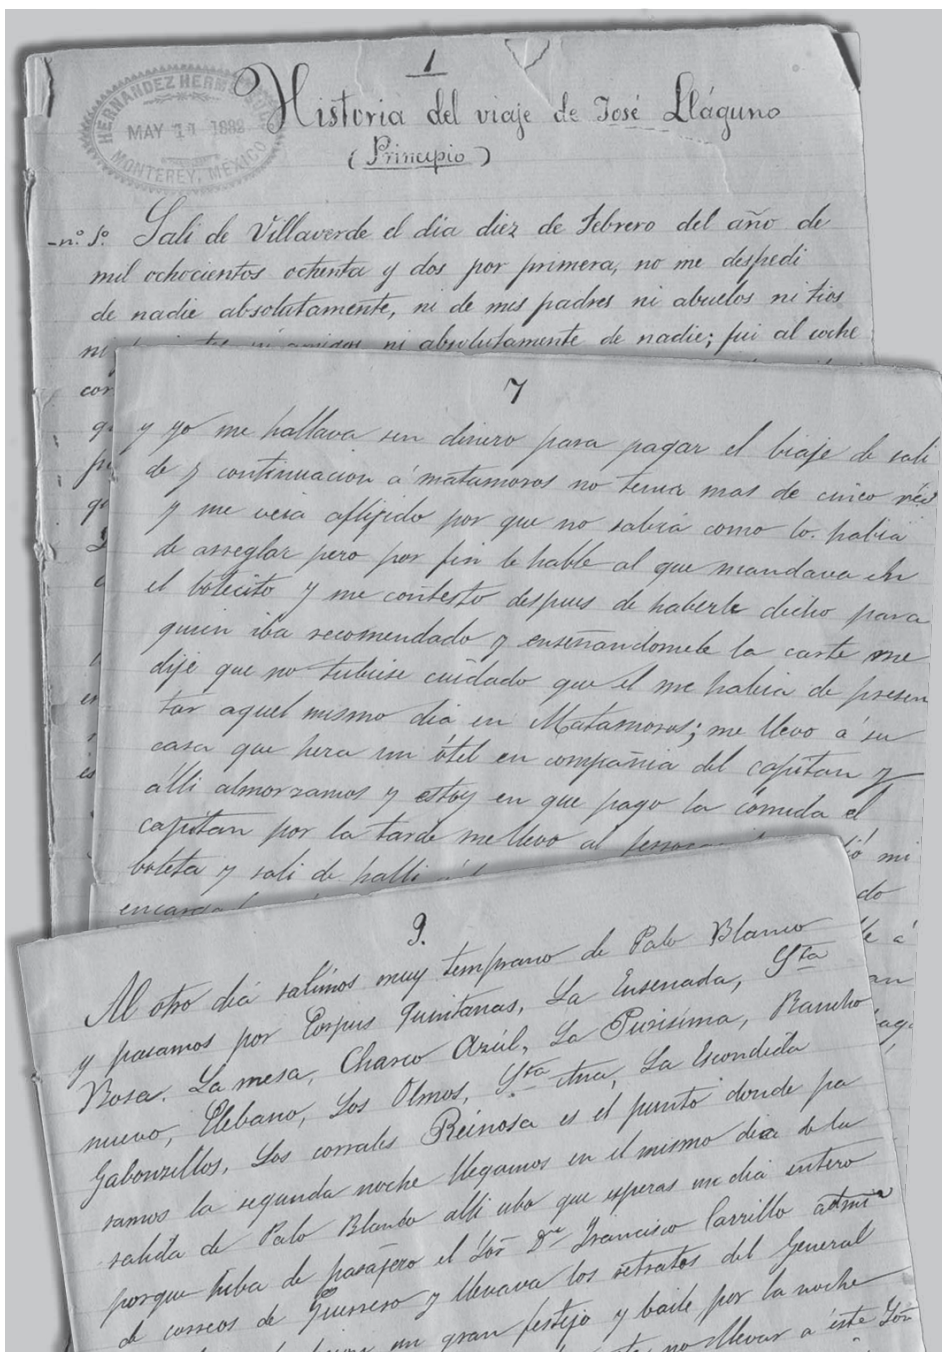 1
HERNANDEZ HERM
MAY 11 1882
MONTEREY, MEXICO
Historia del viaje de José Lláguno
(Principio)
nº 1º Sali de Villaverde el dia diez de Febrero del año de
mil ochocientos ochenta y dos por primera, no me despedi
de nadie absolutamente, ni de mis padres ni abuelos ni tios
ni amigos ni absolutamente de nadie; fui al coche
7
y yo me hallava sin dinero para pagar el biaje de sali
da y continuacion á matamoros no tenia mas de cinco
y me veia aflijido por que no sabia como lo habia
de arreglar pero por fin le hable al que mandava en
el botecito y me contesto despues de haberle dicho para
quien iba recomendado y enseñandomele la carta me
dije que no tubiese cuidado que el me habia de presen
tar aquel mismo dia en Matamoros; me llevo á su
casa que hera un ótel en compañia del capitan y
álli almorzamos y estoy en que pago la cómida el
capitan por la tarde me llevo al mi
boleta y sali de halli
do
9.
Al otro dia salimos muy temprano de Palo Blanco
y pasamos por Corpus Quintanas, La Ensenada, Sta
Rosa. La mesa, Charco Azúl, La Purisima, Rancho
nuevo, Elebano, Los Olmos, Sta Ana, La Escondida
Los corrales Reinosa es el punto donde pa
samos la segunda noche llegamos en el mismo dia de la
salida de Palo Blanco alli ubo que esperar un dia entero
porque hiba de pasajero el Sor Dn Francisco Carrillo admor
de correos de Guerrero y llevava los retratos del General
un gran festijo y baile por la noche
no llevar a éste Sor